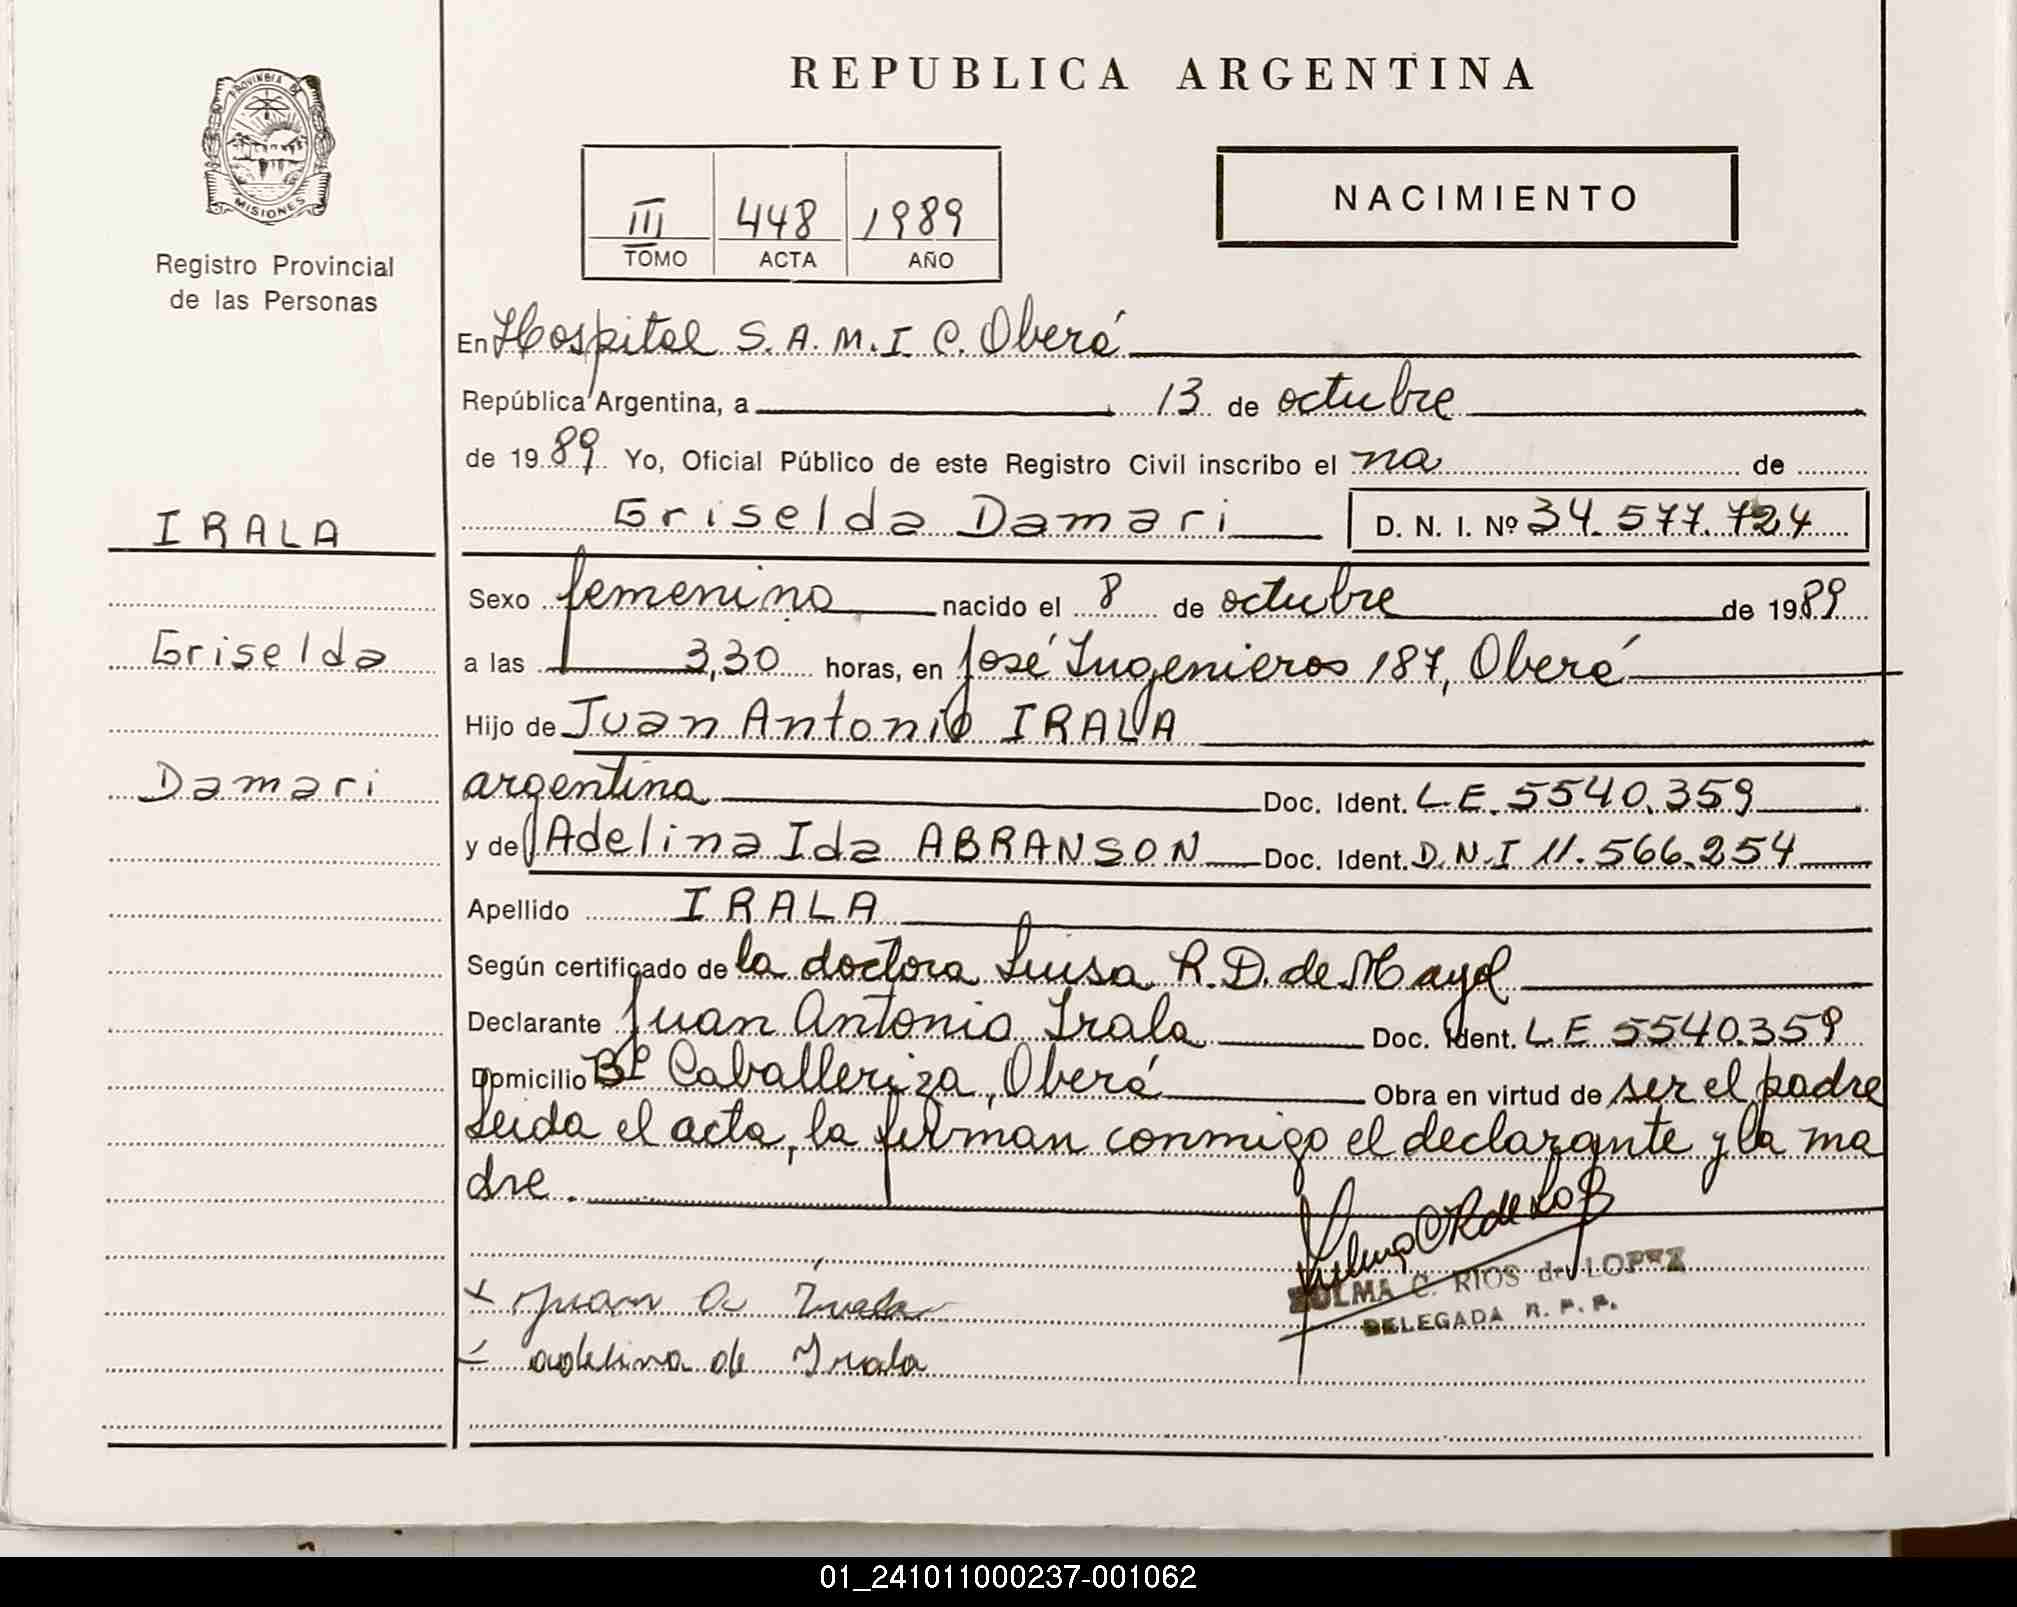 REPUBLICA ARGENTINA
PROVINCIA DE MISIONES
Registro Provincial
de las Personas
III 448 1989
TOMO ACTA AÑO
NACIMIENTO
En Hospital S.A.M.I.C. Oberá
República Argentina, a 13 de octubre
de 1989 Yo, Oficial Público de este Registro Civil inscribo el na de
IRALA
Griselda Damari D. N. I. Nº 34.577.724
Sexo femenino nacido el 8 de octubre de 1989
Griselda
a las 3,30 horas, en José Ingenieros 187, Oberá
Hijo de Juan Antonio IRALA
Damari
argentina Doc. Ident. L.E. 5540.359
y de Adelina Ida ABRANSON Doc. Ident. D.N.I 11.566.254
Apellido IRALA
Según certificado de la doctora Luisa R. D. de Mayol
Declarante Juan Antonio Irala Doc. Ident. L.E 5540.359
Domicilio Bº Caballeriza, Oberá Obra en virtud de ser el padre
Leida el acta, la firman conmigo el declarante y la ma
dre.
ZULMA C. RIOS de LOPEZ
DELEGADA R. P. P.
Juan A Irala
adelina de Irala
01_241011000237-001062